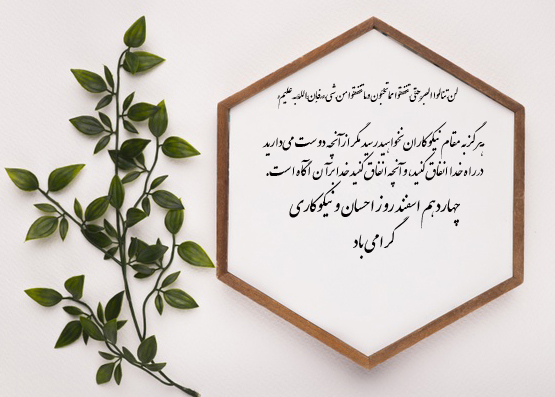 لن تنالوا البر حتی تنفقوا مما تحبون و ما تنفقوا من شیء فان الله به علیم
هرگز به مقام نیکوکاران نخواهید رسید مگر از آنچه دوست می‌دارید
در راه خدا انفاق کنید، و آنچه انفاق کنید خدا بر آن آگاه است.
چهاردهم اسفند روز احسان و نیکوکاری
گرامی باد